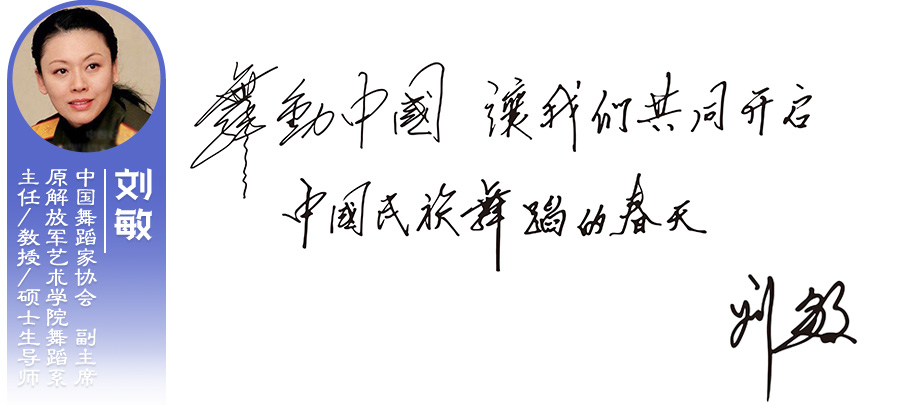 刘敏
中国舞蹈家协会 副主席
原解放军艺术学院舞蹈系
主任/教授/硕士生导师
舞動中國 讓我们共同开启
中國民族舞蹈的春天
刘敏